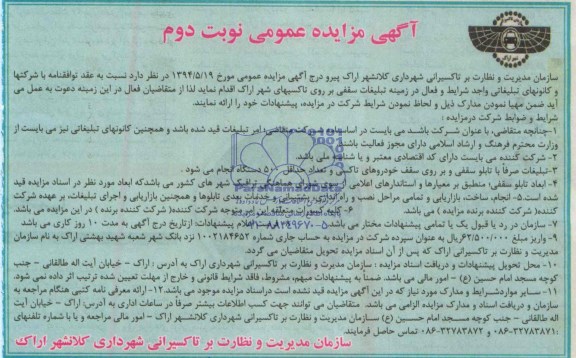 آگهی مزایده عمومی نوبت دوم
سازمان مدیریت و نظارت بر تاکسیرانی شهرداری کلانشهر اراک پیرو درج آگهی مزایده عمومی مورخ ۱۳۹۴/۵/۱۹ در نظر دارد نسبت به عقد توافقنامه با شرکتها
و کانونهای تبلیغاتی واجد شرایط و فعال در زمینه تبلیغات سقفی بر روی تاکسیهای شهر اراک اقدام نماید لذا از متقاضیان فعال در این زمینه دعوت به عمل می
آید ضمن مهیا نمودن مدارک ذیل و لحاظ نمودن شرایط شرکت در مزایده، پیشنهادات خود را ارائه نمایند.
شرایط و ضوابط شرکت درمزایده :
۱-چنانچه متقاضی، با عنوان شرکت باشد می بایست در اساسنامه شرکت متقاضی، امر تبلیغات قید شده باشد و همچنین کانونهای تبلیغاتی نیز می بایست از
وزارت محترم فرهنگ و ارشاد اسلامی دارای مجوز فعالیت باشند.
۲- شرکت کننده می بایست دارای کد اقتصادی معتبر و یا شناسه ملی باشد.
۳- تبلیغات صرفاً با تابلو سقفی و بر روی سقف خودروهای تاکسی و تعداد حداقل ۵۰۰ دستگاه انجام می شود.
۴- ابعاد تابلو سقفی؛ منطبق بر معیارها و استانداردهای اعلامی از سوی شورای هماهنگی ترافیک شهر های کشور می باشدکه ابعاد مورد نظر در اسناد مزایده قید
شده است ۵- انجام، ساخت، بازاریابی و تمامی مراحل نصب و راه اندازی، پشتیبانی و خدمات بعدی تابلوها و همچنین بازاریابی و اجرای تبلیغات، بر عهده شرکت
کننده( شرکت کننده برنده مزایده ) می باشد. ۶- کلیه کسورات متعلقه این امر متوجه شرکت کننده (شرکت کننده برنده ) در این مزایده می باشد.
۷- سازمان در رد یا قبول یک یا تمامی پیشنهادات مختار می باشد. اعلام پیشنهادات ازتاریخ درج آگهی به مدت ۱۰ روز کاری می باشد
۹- واریز مبلغ ۶۳/۵۰۰/۰۰۰ریال به عنوان سپرده شرکت در مزایده به حساب جاری شماره ۱۰۰۲۱۸۴۶۵۲ نزد بانک شهر شعبه شهید بهشتی اراک به نام سازمان
مدیریت و نظارت بر تاکسیرانی شهرداری اراک که پس از آن اسناد مزایده تحویل متقاضیان می گردد.
۱۰- محل تحویل پیشنهادات و دریافت اسناد مزایده : سازمان مدیریت و نظارت بر تاکسیرانی شهرداری اراک به آدرس : اراک - خیابان آیت اله طالقانی - جنب
کوچه مسجد امام حسین (ع) - امور مالی می باشد. ضمناً به پیشنهادات مبهم، مشروط، فاقد شرایط قانونی و خارج از مهلت تعیین شده ترتیب اثر داده نمی شود.
۱۱- سایر مواردشرایط و مدارک مورد نیاز که در این آگهی مزایده قید نشده است دراسناد مزایده موجود می باشد.۱۲- ارائه معرفی نامه کتبی هنگام مراجعه به
سازمان و دریافت اسناد و مدارک مزایده الزامی می باشد. متقاضیان می توانند جهت کسب اطلاعات بیشتر صرفاً در ساعات اداری به آدرس: اراک - خیابان آیت
اله طالقانی - جنب کوچه مسجد امام حسین (ع) سازمان مدیریت و نظارت بر تاکسیرانی شهرداری کلانشهر اراک - امور مالی مراجعه و یا با شماره تلفنهای
۰۸۶-۳۲۷۸۳۸۷۱ و ۰۸۶-۳۲۷۸۳۸۷۲ تماس حاصل فرمایند.
سازمان مدیریت و نظارت بر تاکسیرانی شهرداری کلانشهر اراک